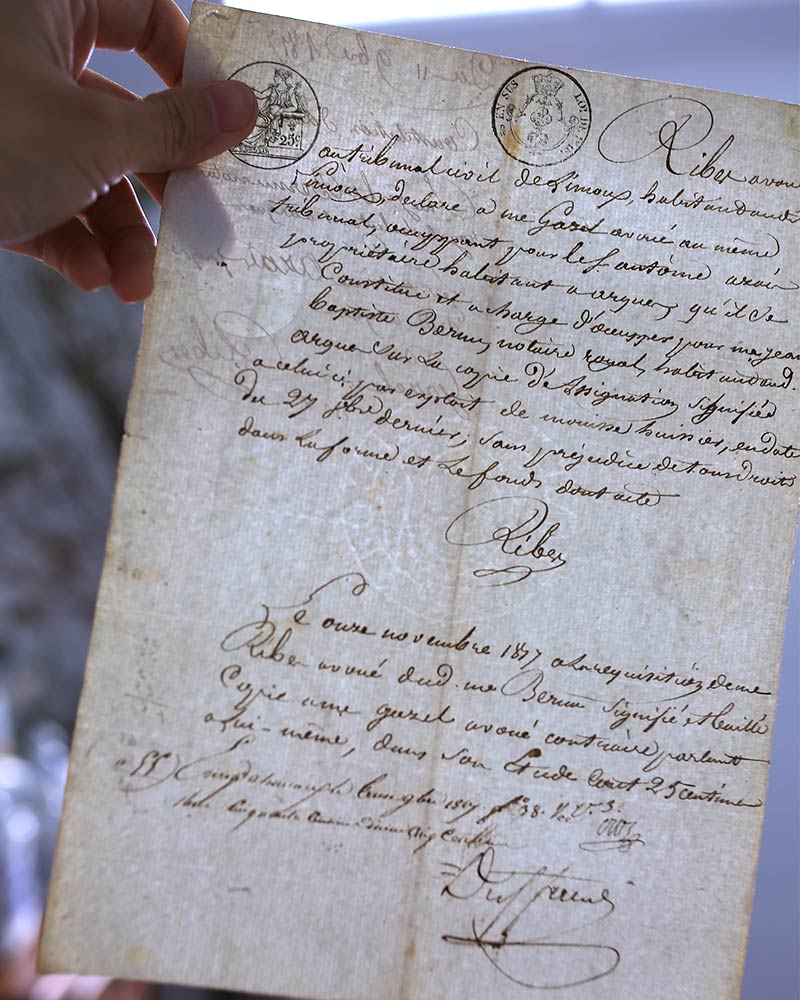 25c
EN SUS
LOI DE
Riber avoué
au tribunal civil de Limoux, habitant aud.
Limoux, declare a me Gazel avoué au même
tribunal, occuppant pour le f antoine
propriétaire habitant a arques, qu'il se
Constitue et a charge d'occuper pour me jean
baptiste Bernu, notaire royal, habitant aud.
arques sur La copie d'assignation signifiée
a celui ci par exploit de mousse huissier, en date
du 27 gbre dernier, sans préjudice de tous droits
dans la forme et Le fonds dont acte
Riber
Le onze novembre 1817 a la requisition de me
Riber avoué dud. me Bernu signifié et baillé
Copie a me gazel avoué contraire parlant
a Lui-même, dans son Etude Cout 25 centimes
1817 fo 38. Vo
cinquante